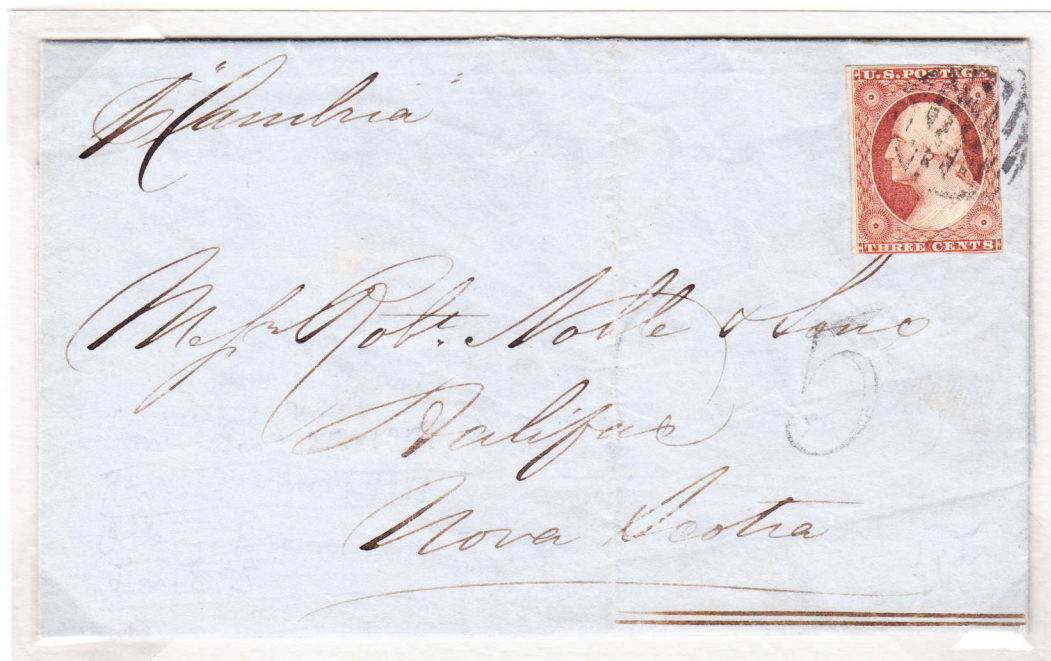 Pr "Cambria"
U.S. POSTAGE
THREE CENTS
Messrs Robt. Noble & Sons
5
Halifax
Nova Scotia